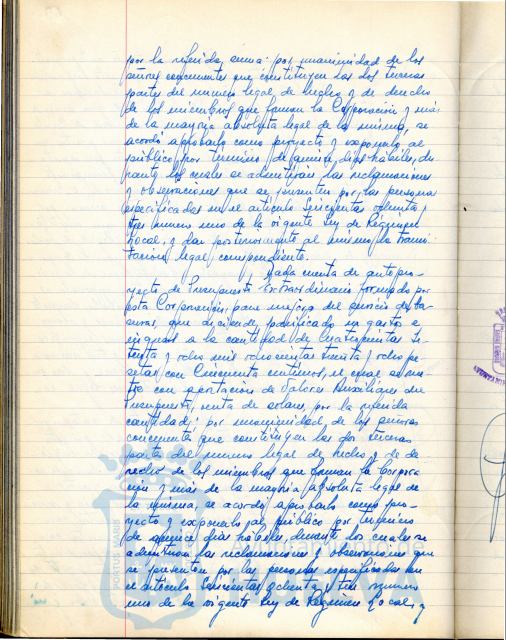 por la referida suma: por unanimidad de los
señores concurrentes que constituyen las dos terceras
partes del numero legal de hecho y de derecho
de los miembros que forman la Corporación y más
de la mayoria absoluta legal de la misma, se
acordó aprobarlo como proyecto y exponerlo al
público por termino de quince dias hábiles, du-
rante los cuales se admitirán las reclamaciones
y observaciones que se presenten por las personas
especificadas en el artículo Seiscientos ochenta y
tres numero uno de la vigente Ley de Régimen
Local, y dar posteriormente al mismo la trami-
tación legal correspondiente.
Dada cuenta de ante pro-
yecto de Presupuesto Extraordinario formado por
esta Corporación, para mejora del servicio de ba-
suras, que asciende, nivelado en gastos e
ingresos a la cantidad de Cuatrocientas
y ocho mil ochocientas treinta y ocho pe-
setas con Cincuenta centimos, el cual se nu-
tre con aportación de Valores Auxiliares del
Presupuesto, venta de solares, por la referida
cantidad; por unanimidad, de los señores
concurrentes que constituyen las dos terceras
partes del numero legal de hecho y de de-
recho de los miembros que forman la Corpora-
ción y más de la mayoria absoluta legal de
la misma, se acordó aprobarlo como pro-
yecto y exponerlo al público por termino
de quince dias hábiles, durante los cuales se
admitirán las reclamaciones y observaciones que
se presenten por las personas especificadas en
el artículo Seiscientos ochenta y tres numero
uno de la vigente Ley de Régimen Local, y
PORTUS MAGNUS